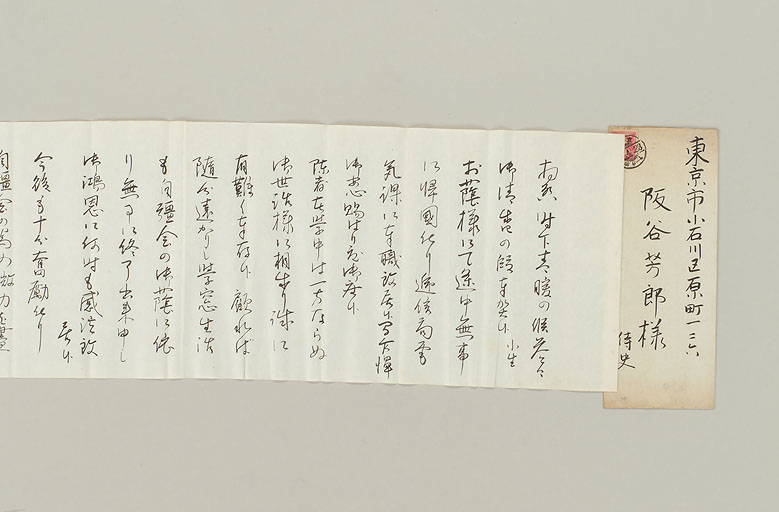 東京市小石川区原町一二六
阪谷芳郎様
侍史
拝啓 時下春暖の候益々
御清書の段奉賀候 小生
お蔭様にて途中無事
に帰国仕り逓信局電
気課に奉職致居候間乍憚
御思召賜はり度候
陳者在学中は一方ならぬ
御世話様に相成り誠に
有難く奉存候 顧れば
随分遠かりし学窓生活
も自彊会の御蔭に依
り無事に終了出来申し
御鴻恩に何時も感泣致
居候
今後も十分奮励仕り
自彊会の為め努力